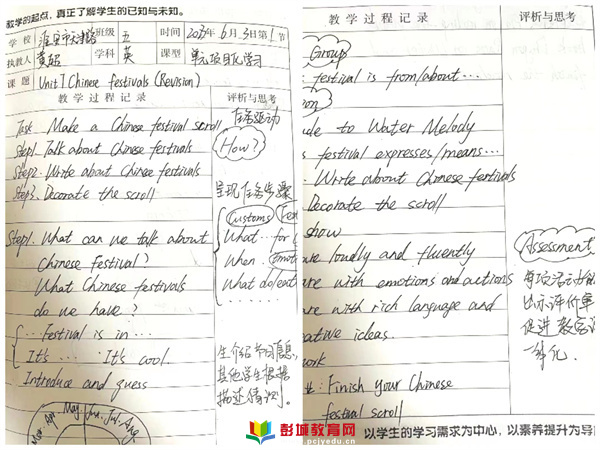 教学的起点,真正了解学生的已知与未知。
学校 班级 五 时间 2023年6月3日第1节
执教人 学科 英 课型 单元项目化学习
课题 Unit 7 Chinese festivals (Revision)
教学过程记录 评析与思考
Task. Make a Chinese festival scroll 任务驱动
Step1. Talk about Chinese festivals How?
Step2. Write about Chinese festivals
Step3. Decorate the scroll 呈现任务步骤
Customs
Step1. What can we talk about What... for
Chinese festival? When.
What Chinese festivals What do/eat
do we have?
... Festival is in ...
It's ... It's cool.
Introduce and guess
生介绍节日信息,
其他学生根据
描述猜测。
Mar. Apr. May. Jun. Jul. Aug.
教学过程记录 评析与思考
Group
festival is from/about...
to Water Melody
festival expresses/means...
Write about Chinese festivals
Decorate the scroll
show
loudly and fluently Assessment
with emotions and actions
with rich language and 出示评价单
ideas. 促进教
一体化.
: Finish your Chinese
festival scroll
以学生的学习需求为中心,以素养提升为导
彭城教育网
www.pcjyedu.cn